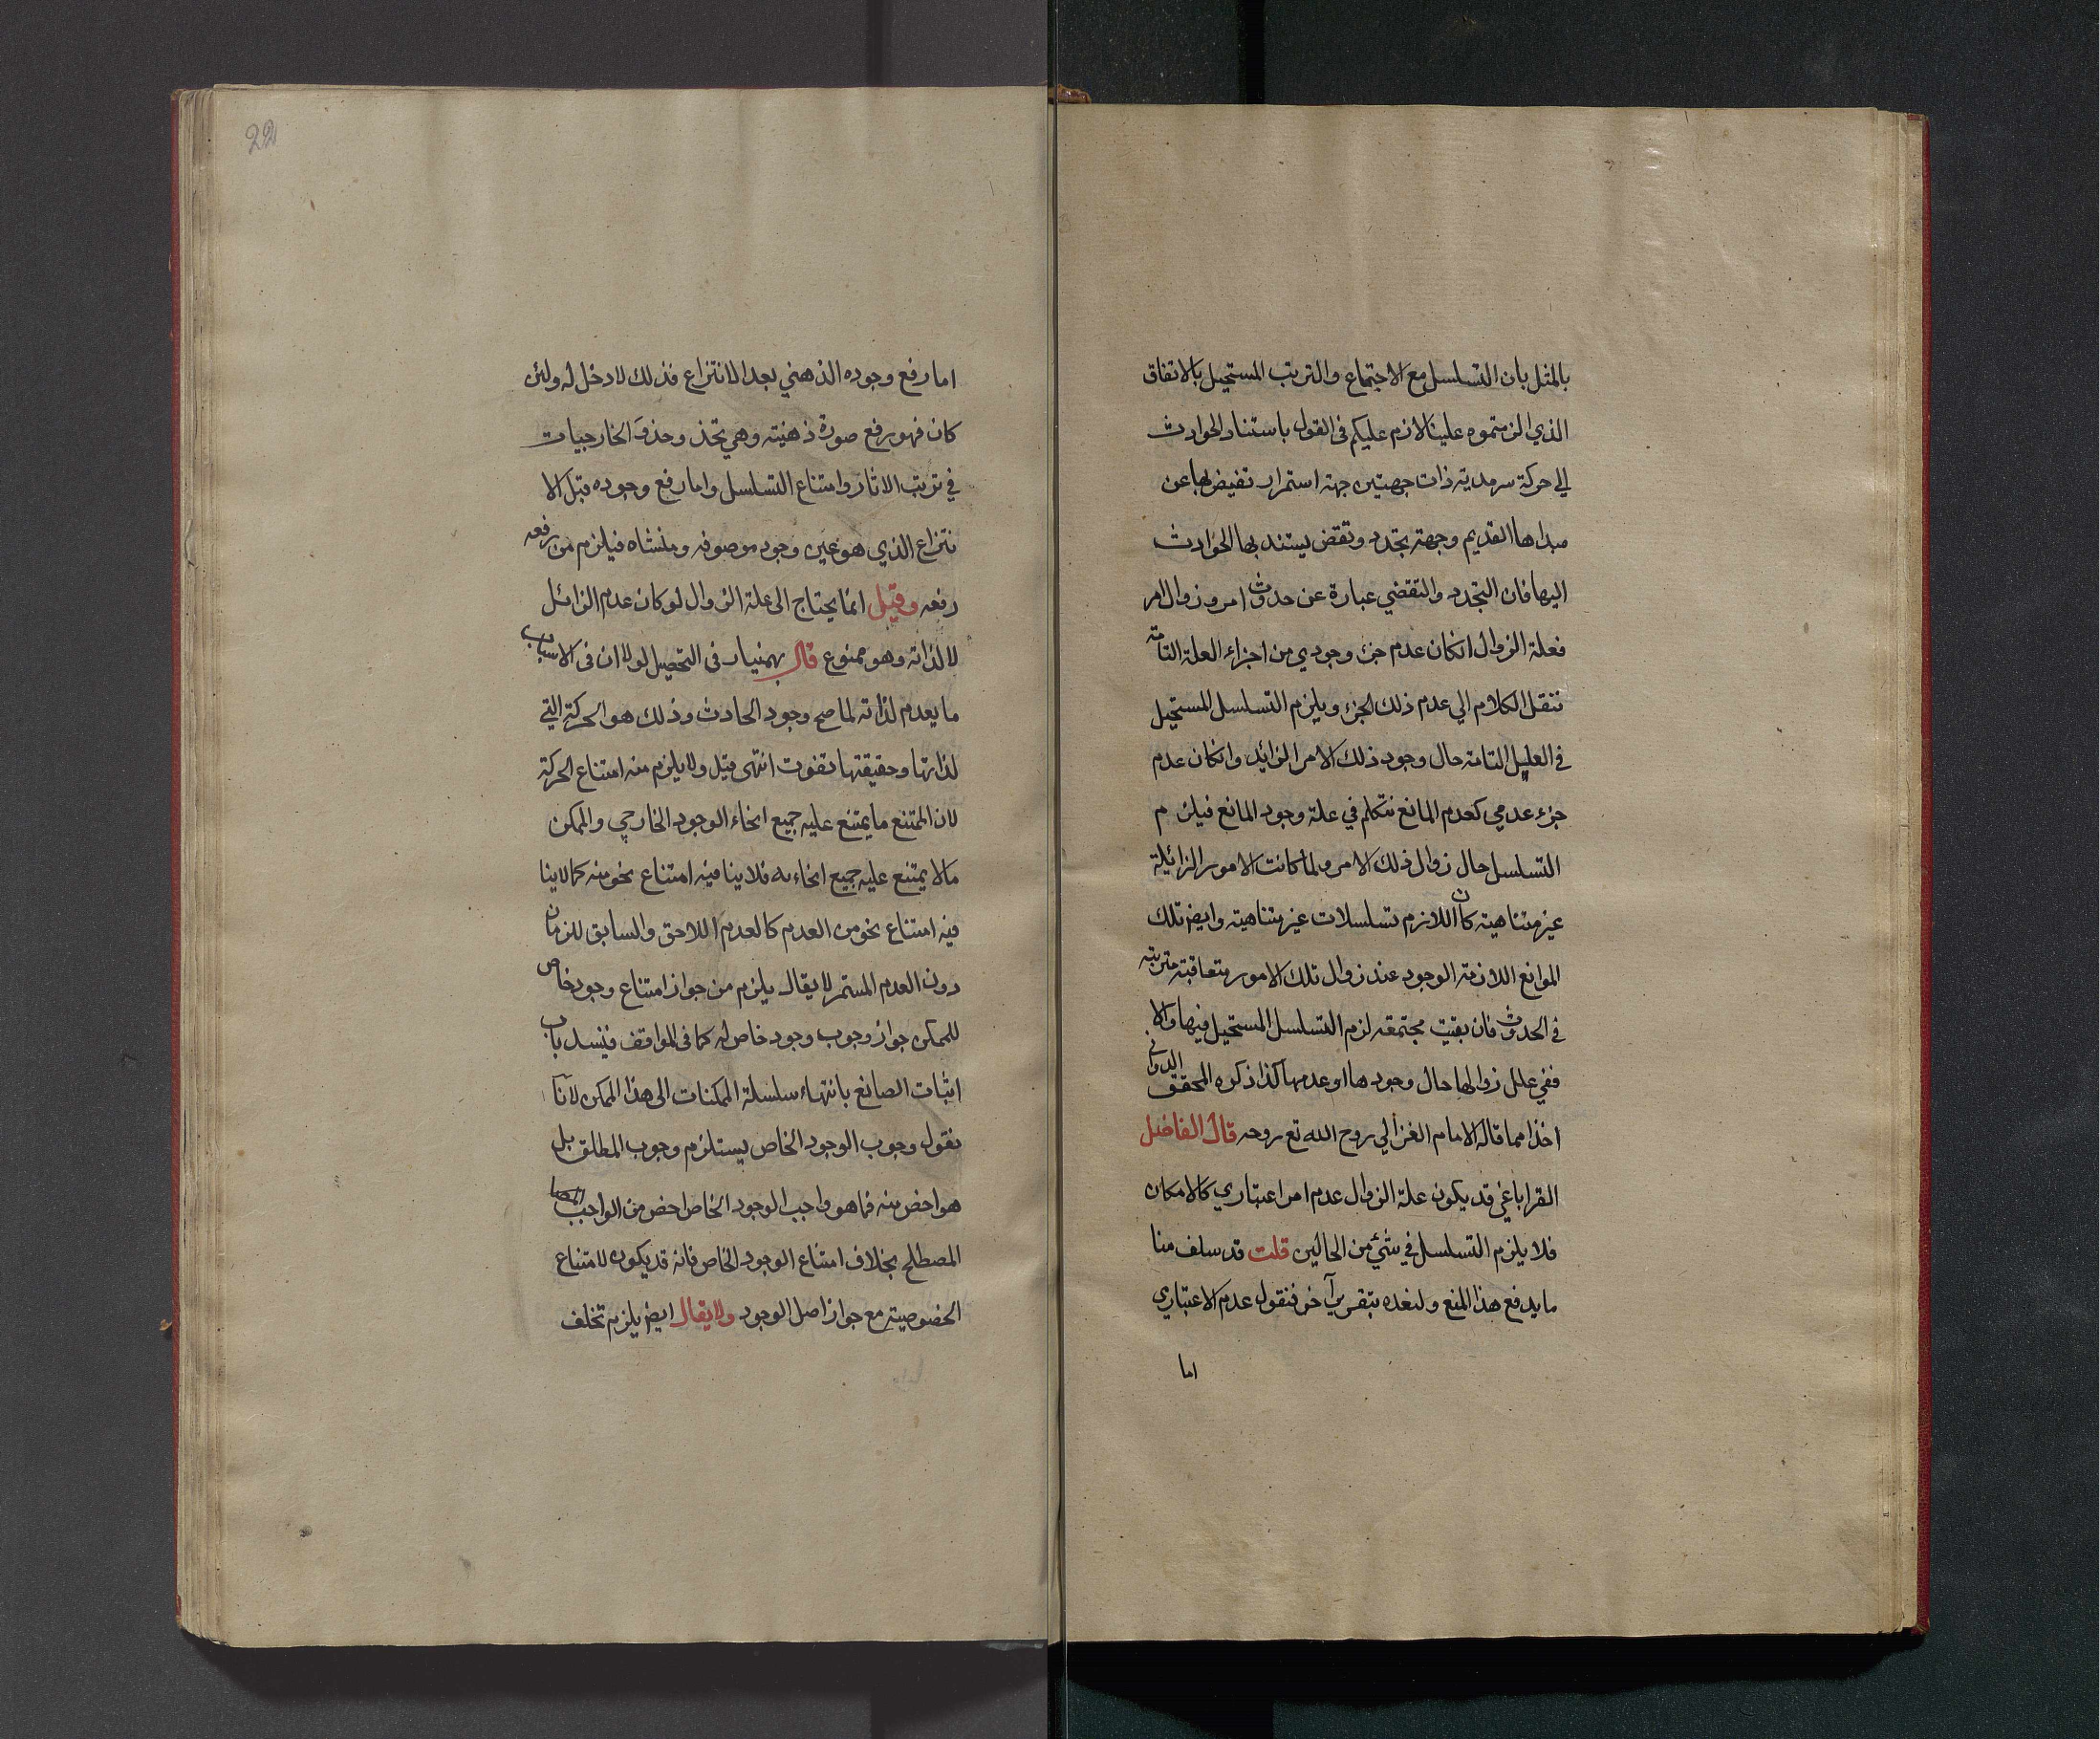 بالمثل بان التسلسل مع الاجتماع والترتب المستحيل بالاتفاق
الذي الزمتموه علينا لازم عليكم فى القول باستناد الحوادث
الى حركة سرمدية ذات جهتين جهة استمرار تفيض بها عن
مبداها القديم وجهة تجدد وتقض يستند بها الحوادث
اليها فان التجدد والتقضي عبارة عن حدوث امر وزوال امر
فعلة الزوال انكان عدم جزء وجودي من اجزاء العلة التامة
ننقل الكلام الي عدم ذلك الجزء ويلزم التسلسل المستحيل
في العلل التامة حال وجود ذلك الامر الزائد وانكان عدم
جزء عدمي كعدم المانع نتكلم في علة وجود المانع فيلزم
التسلسل حال زوال ذلك الامر ولما كانت الامور الزائلة
غير متناهية كان اللازم تسلسلات غير متناهية وايض تلك
الموانع اللازمة الوجود عند زوال تلك الامور متعاقبة مترتبة
في الحدوث فان بقيت مجتمعة لزم التسلسل المستحيل فيها والا
ففي علل زوالها حال وجودها او عدمها كذا ذكره المحقق الدواني
اخذا مما قاله الامام الغزالي روح الله تع روحه قال الفاضل
القراباغي قد يكون علة الزوال عدم امر اعتباري كالامكان
فلا يلزم التسلسل في شئ من الحالين قلت قد سلف منا
ما يدفع هذا المنع ولنعده بتقرير آخر فنقول عدم الاعتباري
اما
22
اما رفع وجوده الذهني بعد الانتزاع فذلك لا دخل له ولئن
كان فهو رفع صورة ذهنية وهي تحذ وحذو الخارجيات
في ترتب الاثار وامتناع التسلسل واما رفع وجوده قبل الا
نتزاع الذي هو عين وجود موصوفه ومنشاه فيلزم من رفعه
رفعه وقيل انما يحتاج الى علة الزوال لو كان عدم الزائل
لا لذاته وهو ممنوع قال بهمنيار فى التحصيل لولا ان فى الاسباب
ما يعدم لذاته لما صح وجود الحادث وذلك هو الحركة التي
لذاتها وحقيقتها تفوت انتهى قيل ولا يلزم منه امتناع الحركة
لان الممتنع ما يمتنع عليه جميع انحاء الوجود الخارجي والممكن
ما لا يمتنع عليه جميع انحاءه فلا ينافيه امتناع نحو منه كما لا ينا
فيه امتناع نحو من العدم كالعدم اللاحق والسابق للزمان
دون العدم المستمر لا يقال يلزم من جواز امتناع وجود خاص
للممكن جواز وجوب وجود خاص له كما فى المواقف فينسد باب
اثبات الصانع بانتهاء سلسلة الممكنات الى هذا الممكن لآنا
نقول وجوب الوجود الخاص يستلزم وجوب المطلق بل
هو اخص منه فما هو واجب الوجود الخاص اخص من الواجب
المصطلح بخلاف امتناع الوجود الخاص فانه قد يكون لامتناع
الخصوصية مع جواز اصل الوجود ولا يقال ايض يلزم تخلف